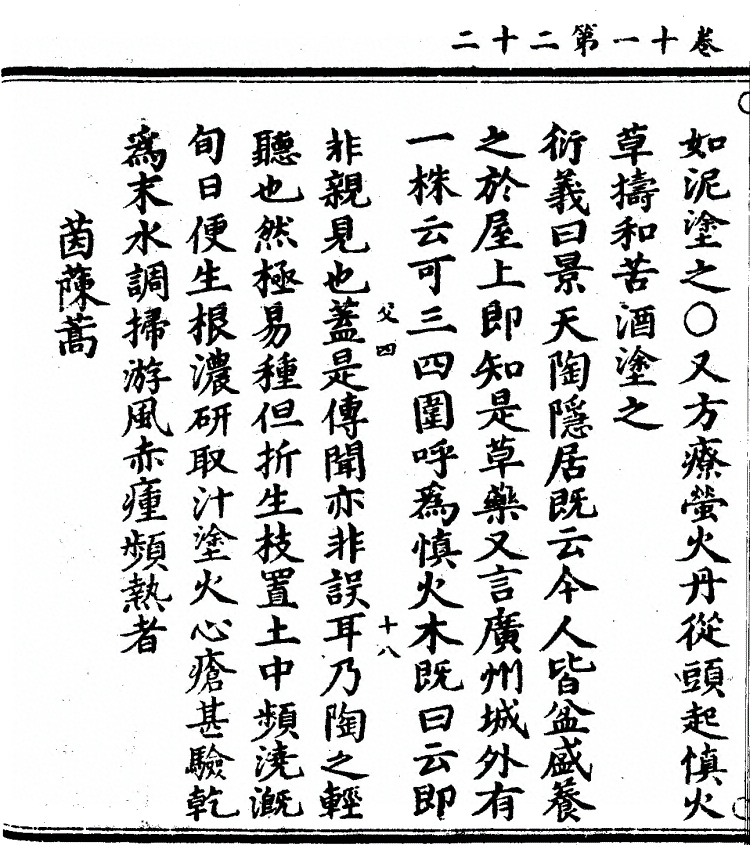 卷十一第二十二
如泥塗之〇又方療螢火丹從頭起慎火
草擣和苦酒塗之
衍義曰景天陶隱居既云今人皆盆盛養
之於屋上即知是草藥又言廣州城外有
一株云可三四圍呼爲慎火木既曰云即
父四
十八
非親見也蓋是傳聞亦非誤耳乃陶之輕
聽也然極易種但折生枝置土中頻澆溉
旬日便生根濃研取汁塗火心瘡甚驗乾
爲末水調掃游風赤瘇頻熱者
茵蔯蒿